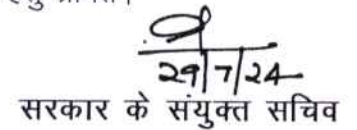 29/7/24
सरकार के संयुक्त सचिव